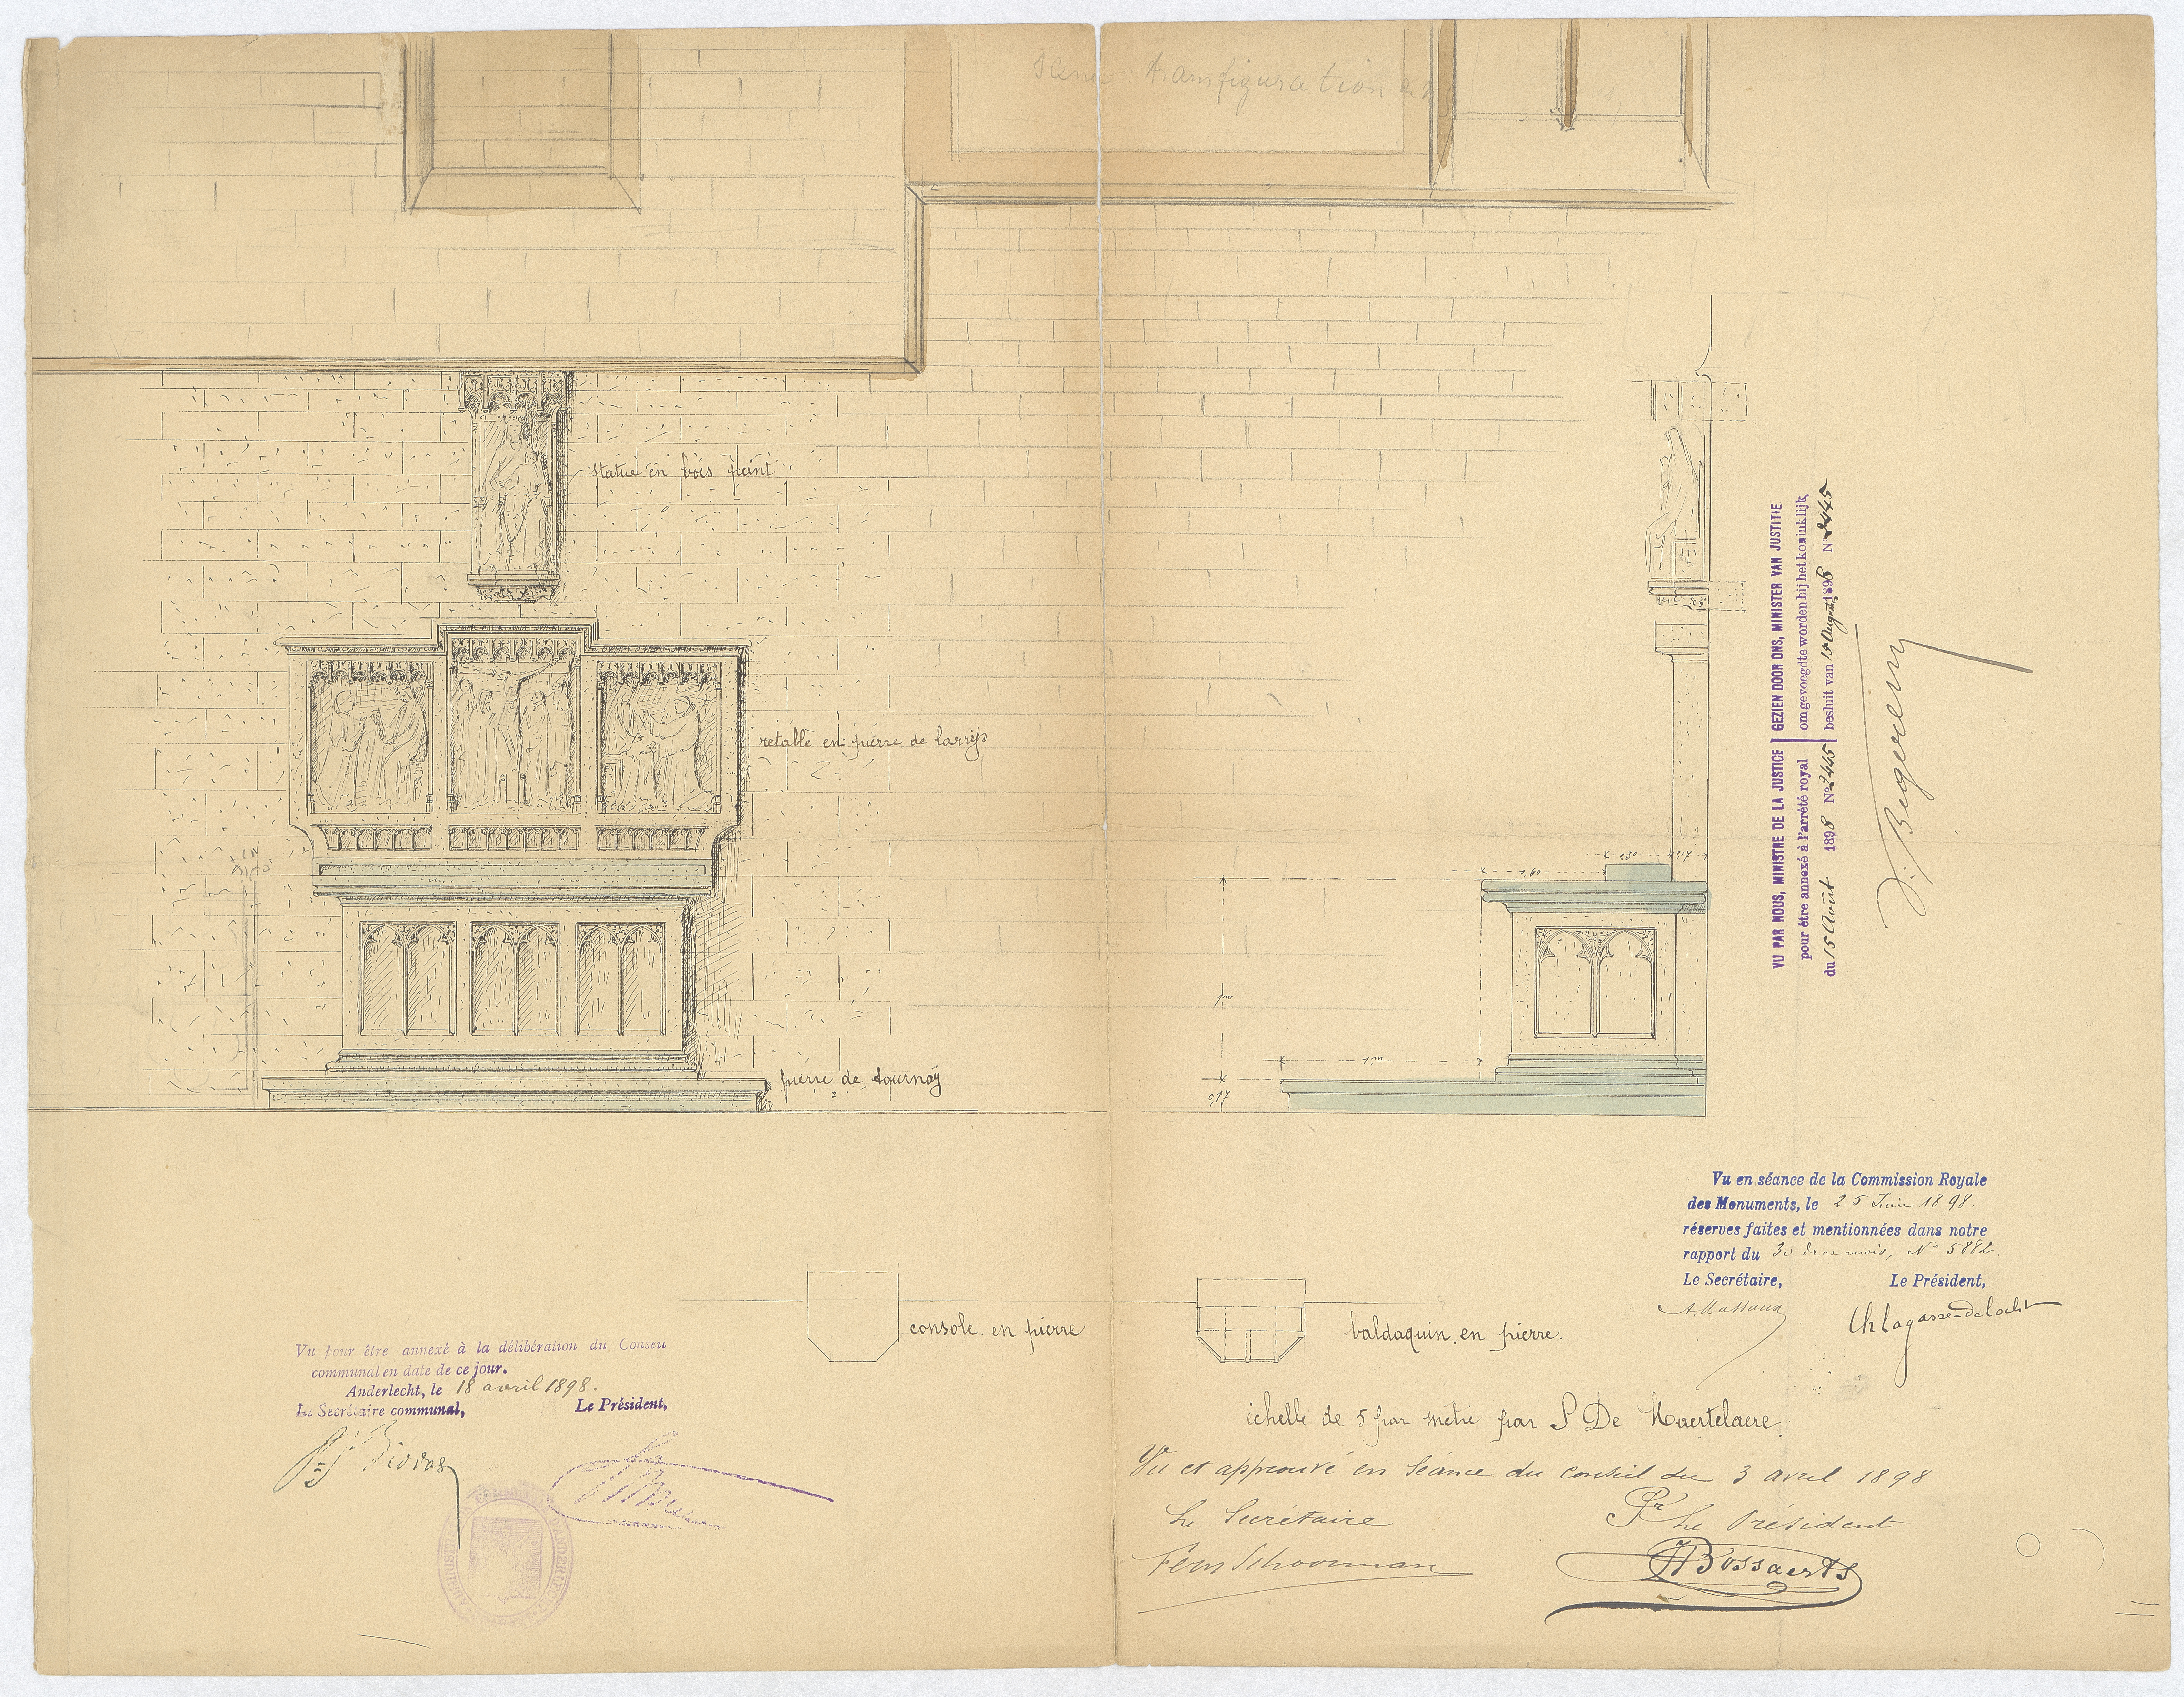 transfiguration
statue en bois peint
retable en pierre de larrys
pierre de tournay
0,30 0,17
0,60
1m
1,00
0,17
console en pierre
baldaquin en pierre.
échelle de 5 par mètre par S De Maertelaere.
Vu et approuvé en Séance du conseil du 3 avril 1898
Le Secrétaire Pr Le Président
Schoonman HBossaerts
Vu pour être annexé à la délibération du Conseil
communal en date de ce jour.
Anderlecht, le 18 avril 1898.
Le Secrétaire communal, Le Président,
Vu en séance de la Commission Royale
des Monuments, le 25 Juin 1898.
réserves faites et mentionnées dans notre
rapport du 30 du mois, No 5882.
Le Secrétaire, Le Président,
A. Massaux Ch Lagasse-de Locht
VU PAR NOUS, MINISTRE DE LA JUSTICE
pour être annexé à l'arrêté royal
du 15 Août 1898 No 2445
GEZIEN DOOR ONS, MINISTER VAN JUSTITIE
om gevoegd te worden bij het koninklijk
besluit van 15 Augs 1898 No 2445
V. Begerem